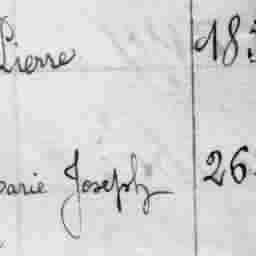 Pierre 183
Marie Joseph 26